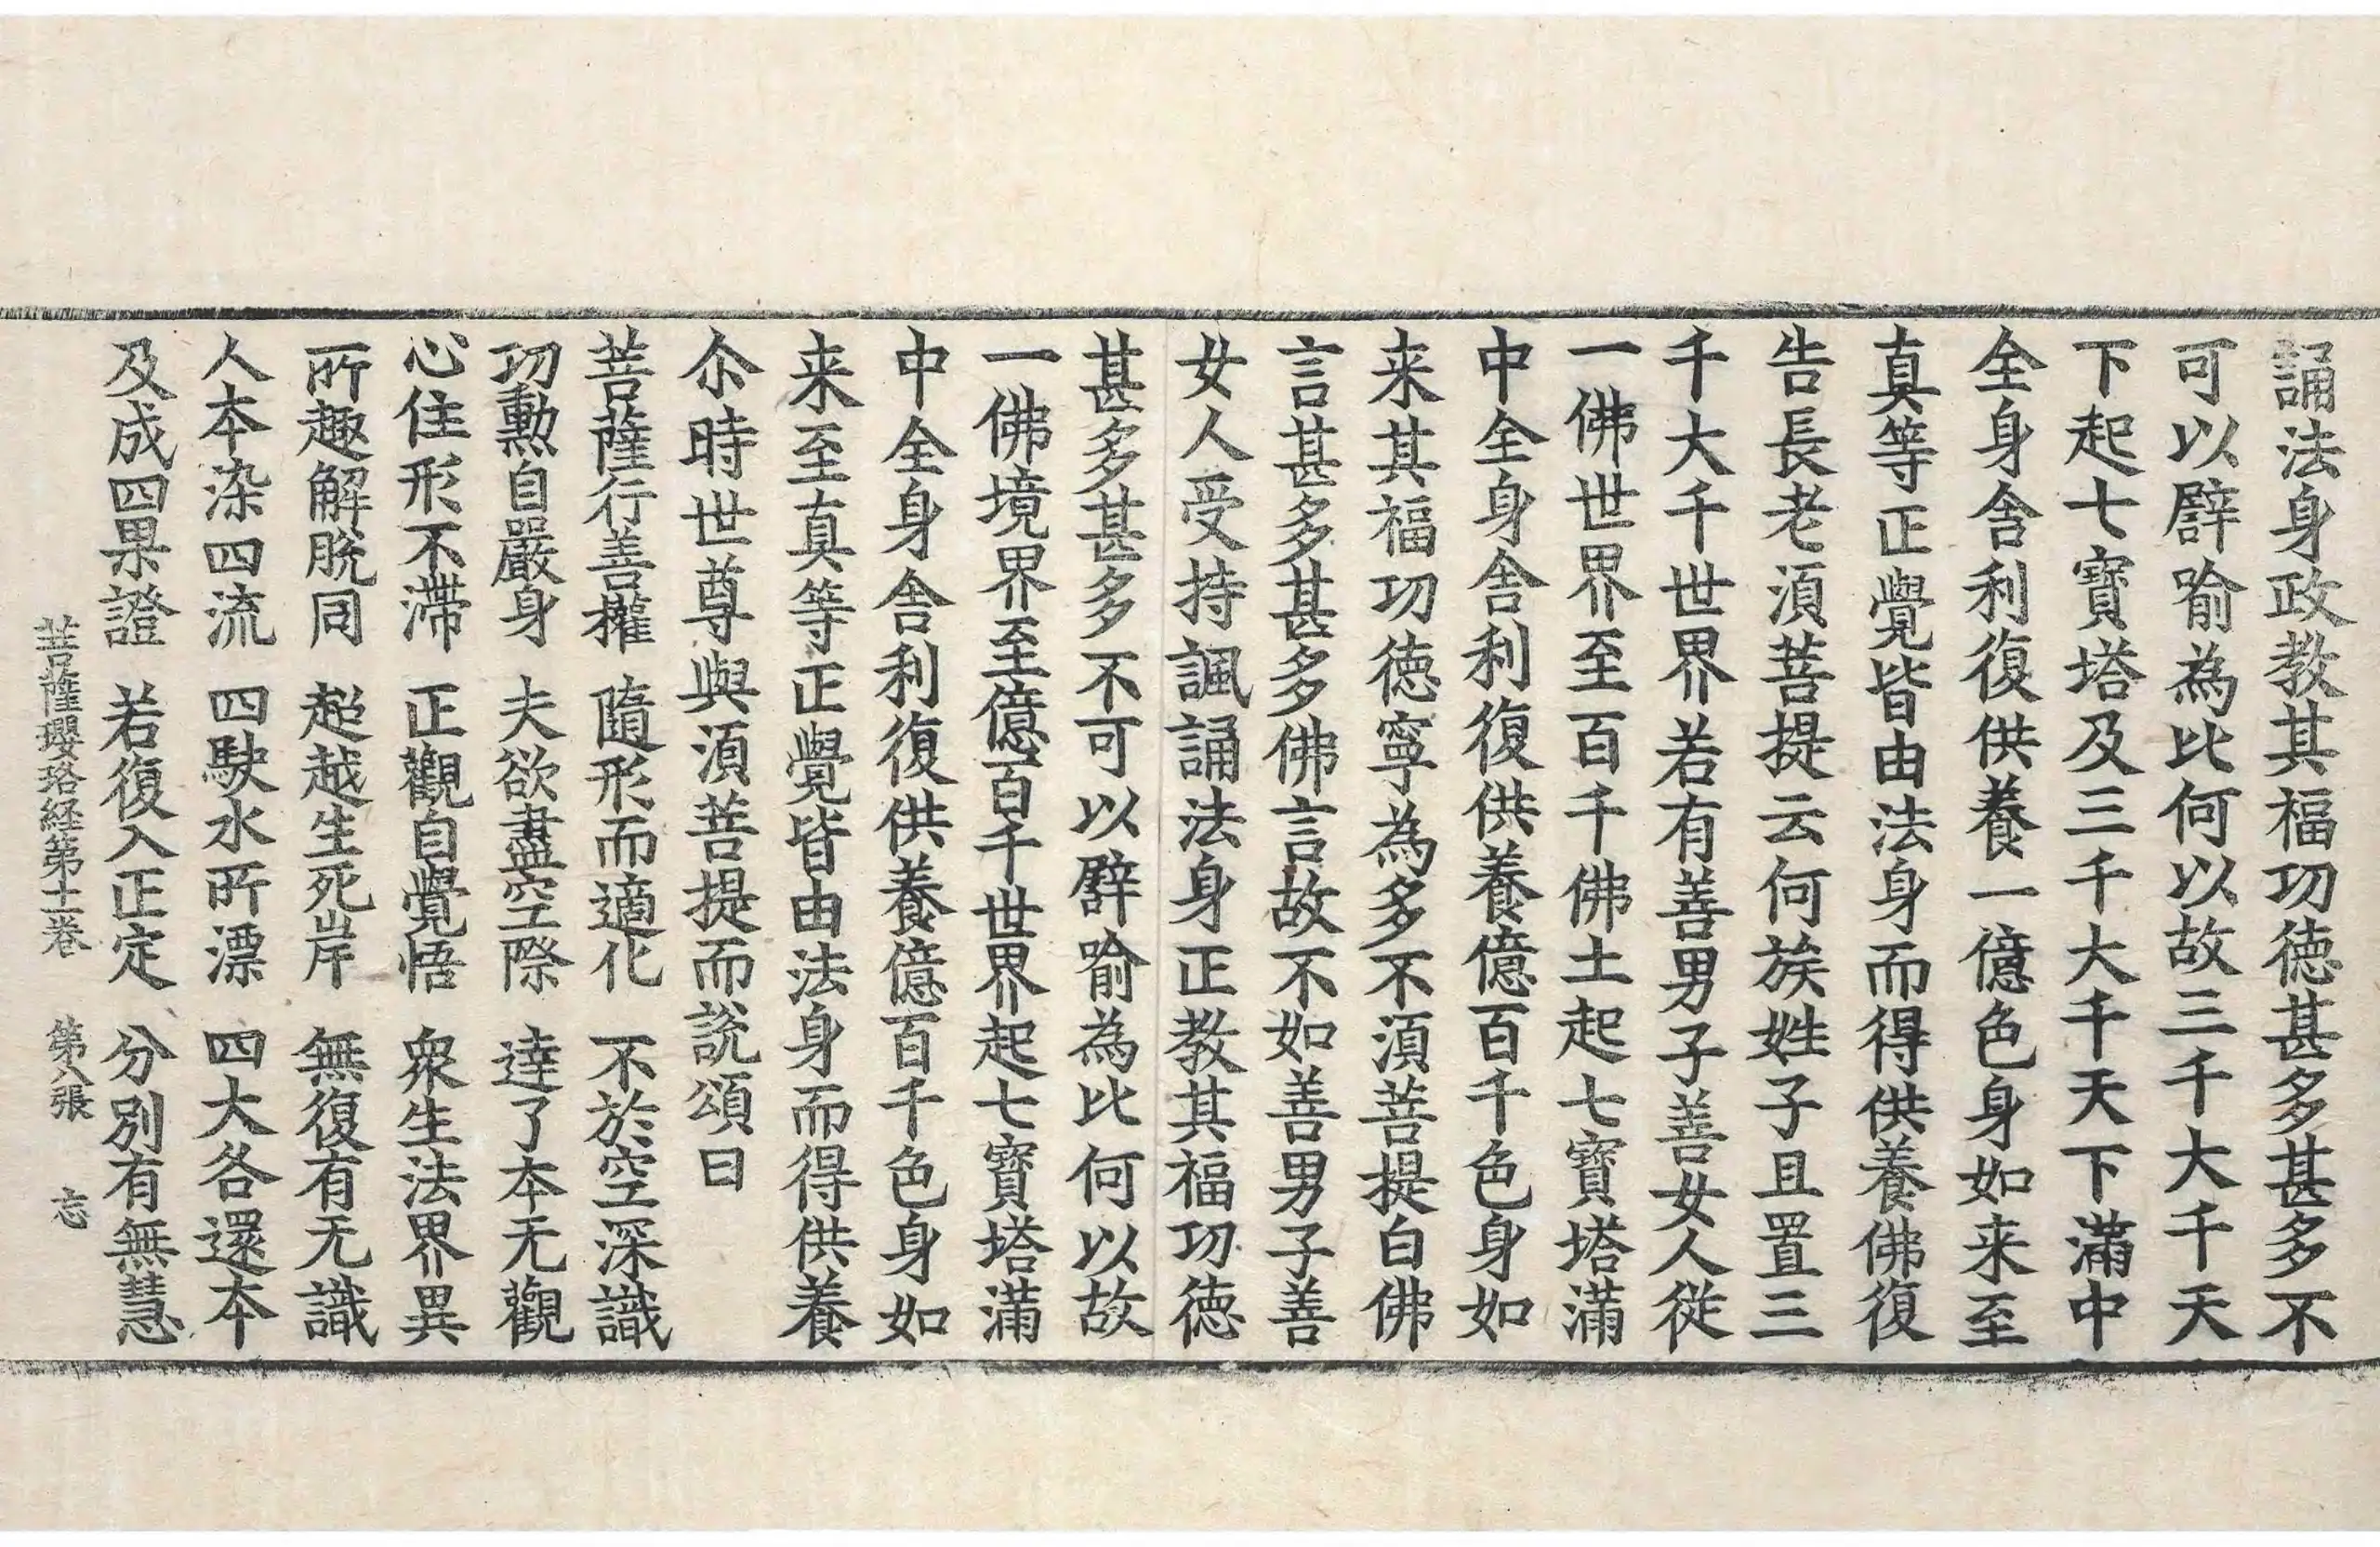 誦法身政教其福功徳甚多甚多不
可以譬喻為比何以故三千大千天
下起七寶塔及三千大千天下滿中
全身舍利復供養一億色身如来至
真等正覺皆由法身而得供養佛復
告長老湏菩提云何族姓子且置三
千大千世界若有善男子善女人從
一佛世界至百千佛土起七寶塔滿
中全身舍利復供養億百千色身如
来其福功徳寧為多不湏菩提白佛
言甚多甚多佛言故不如善男子善
女人受持諷誦法身正教其福功徳
甚多甚多不可以譬喻為比何以故
一佛境界至億百千世界起七寶塔滿
中全身舍利復供養億百千色身如
来至真等正覺皆由法身而得供養
尒時世尊與湏菩提而說頌曰
菩薩行善權　隨形而適化　不於空深識
功勲自嚴身　夫欲盡空際　達了本无觀
心住形不滯　正觀自覺悟　衆生法界異
所趣解脫同　超越生死岸　無復有无識
人本染四流　四駛水所漂　四大各還本
及成四果證　若復入正定　分別有無慧
菩薩瓔珞経第十一卷　第八張　忘